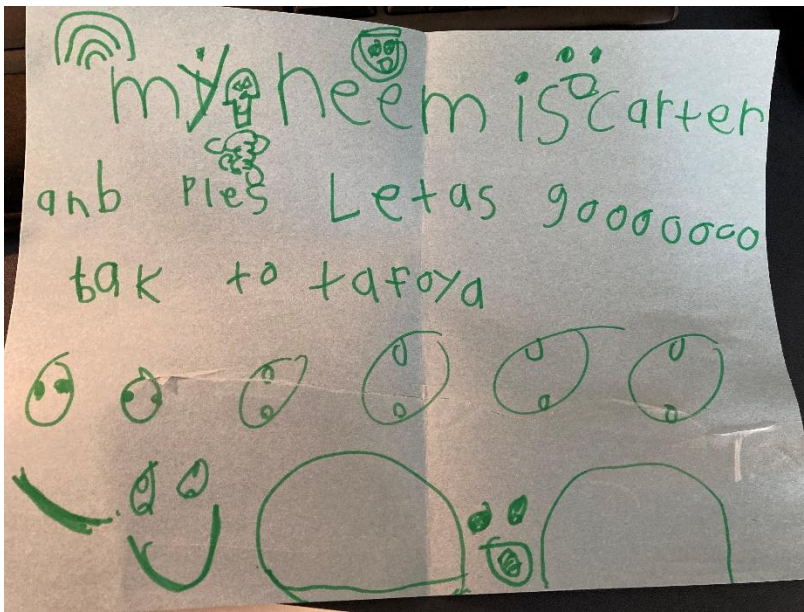 my neem is carter
anb Ples Letas goooooco
bak to tafoya